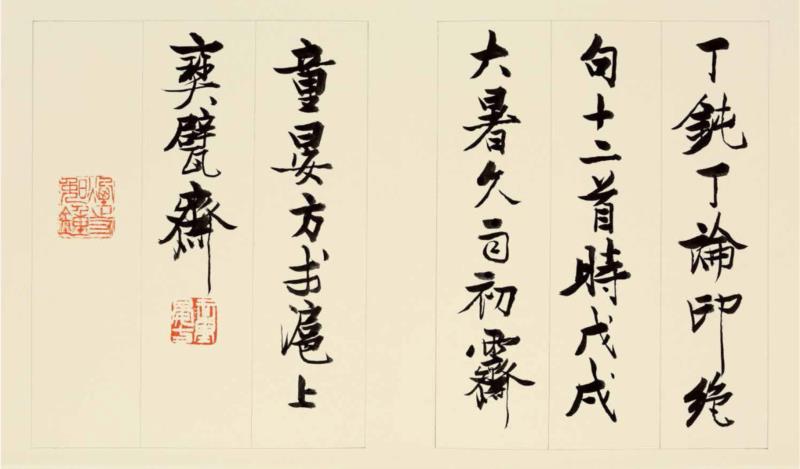 丁鈍丁論印絕
句十二首時戊戌
大暑久雨初霽
童晏方书滬上
甓齋